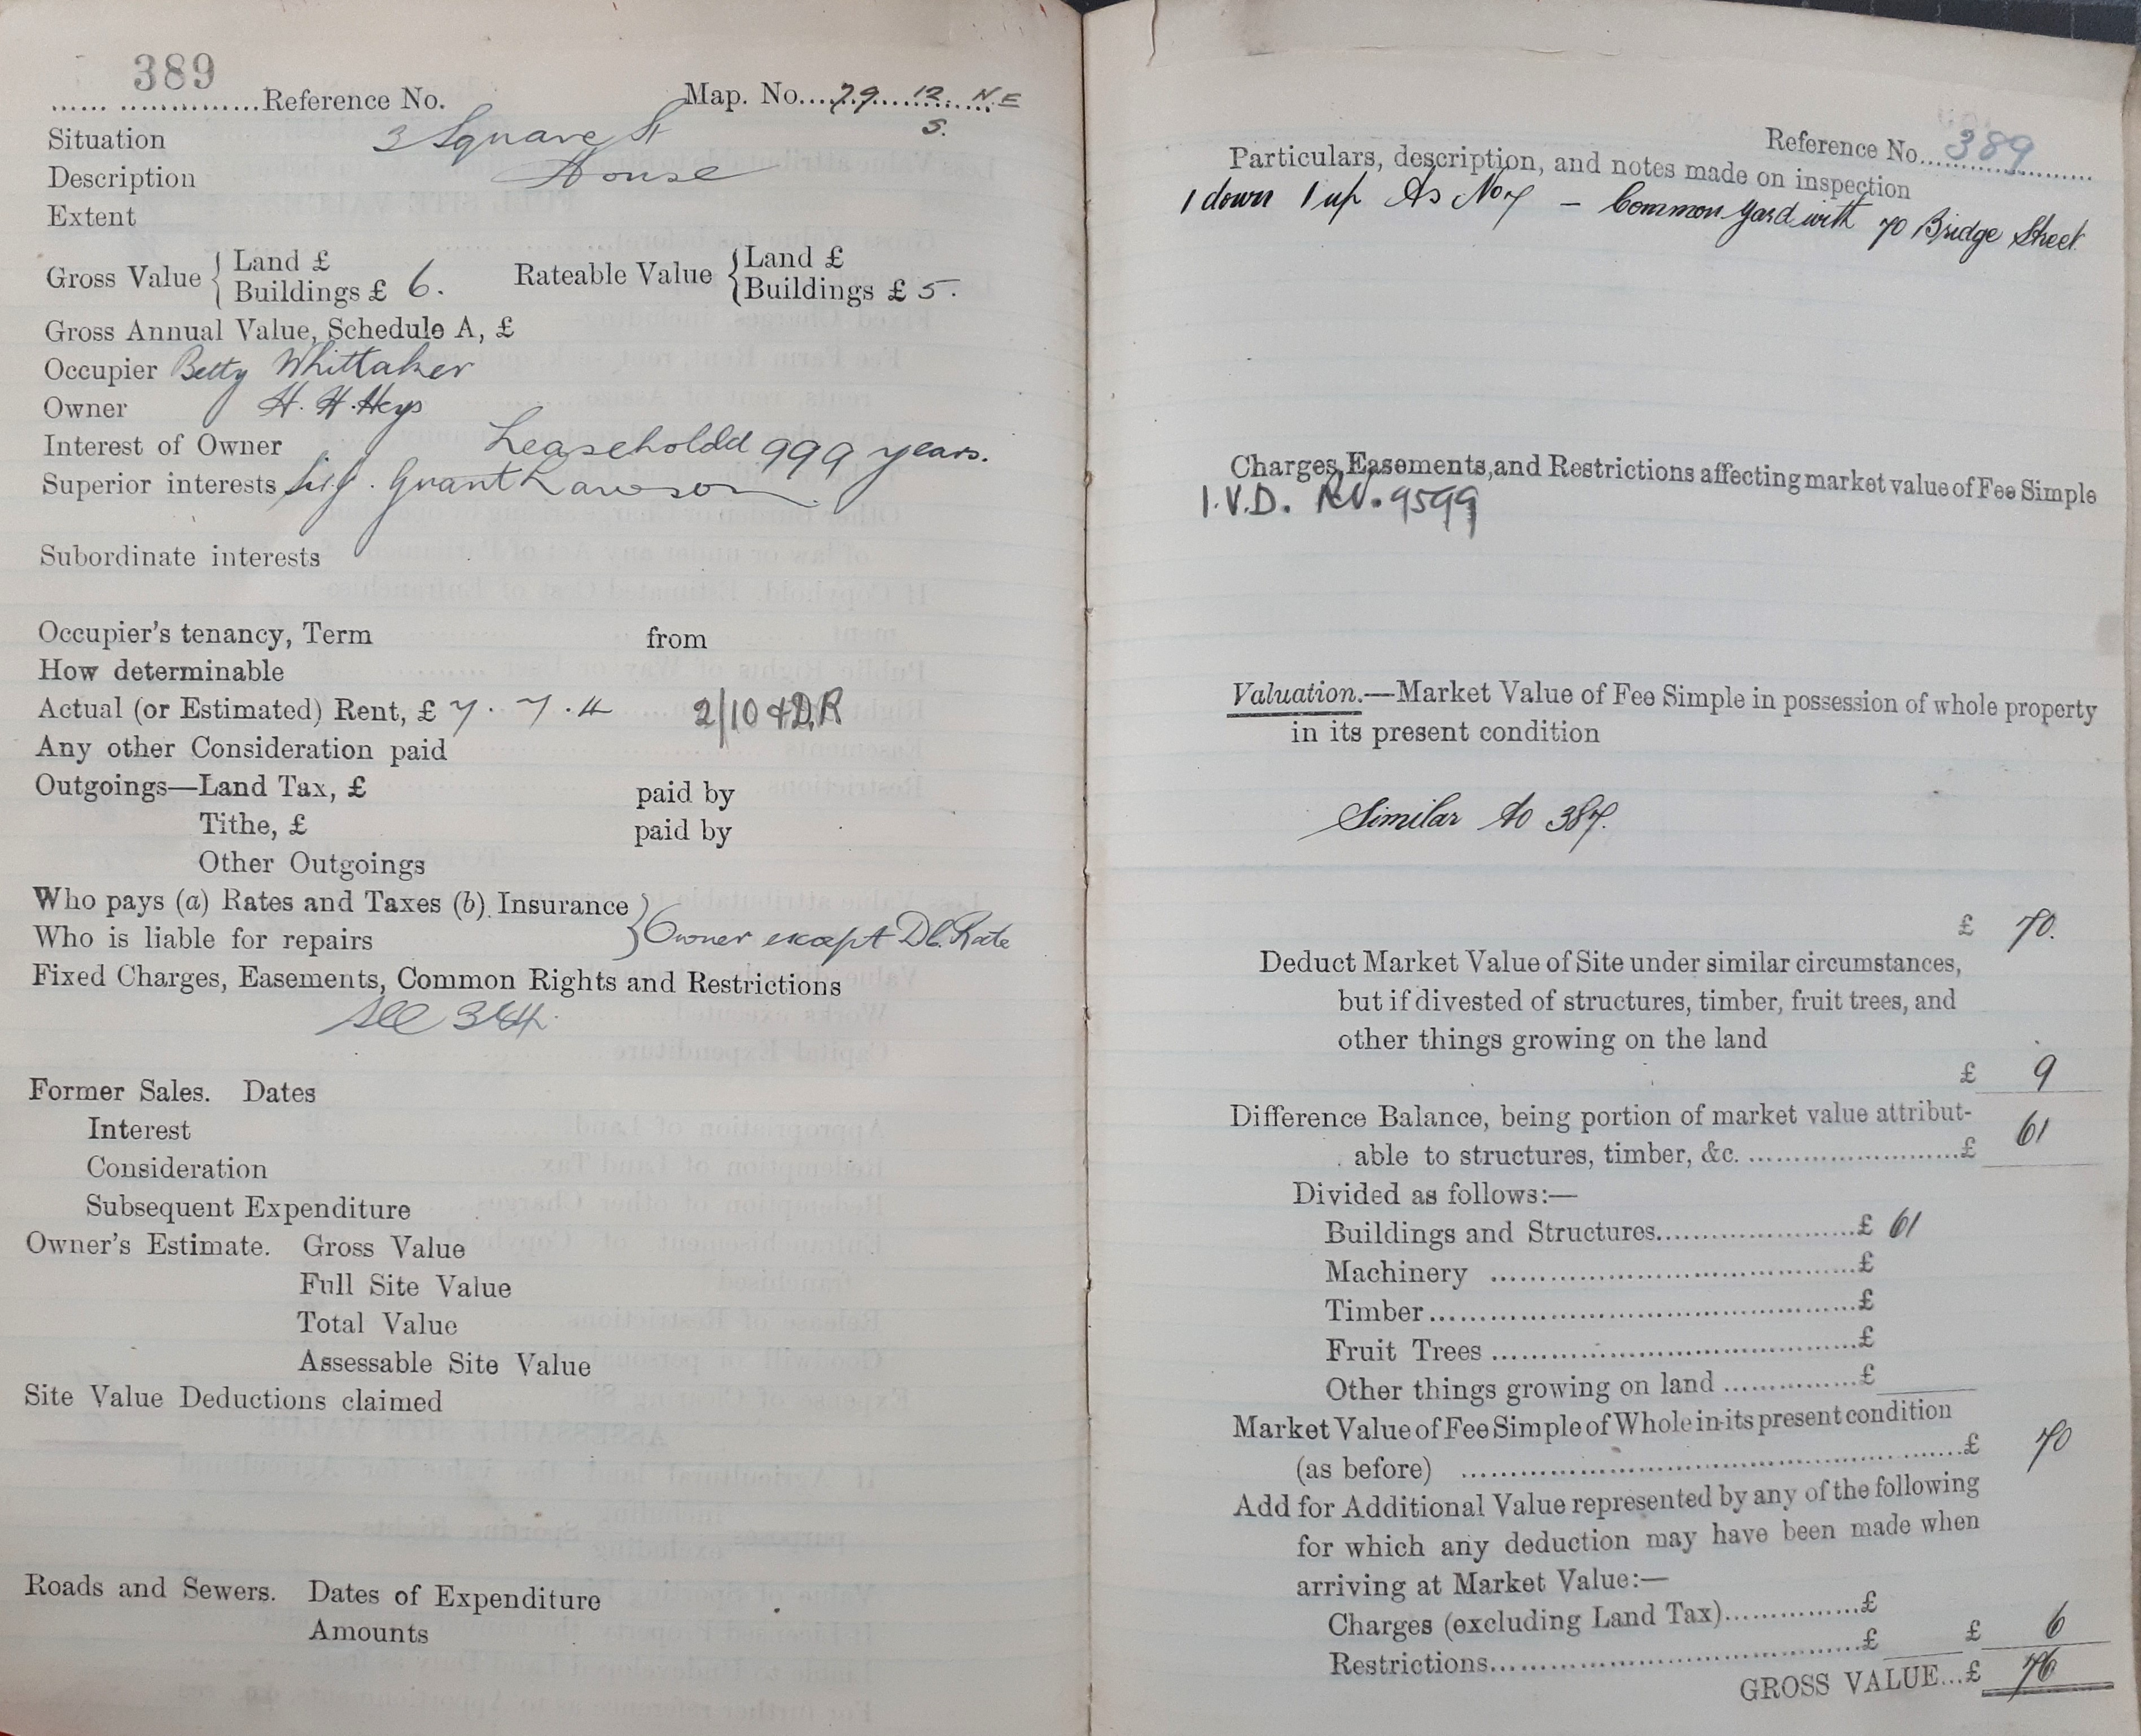 389
...... ..............Reference No.
Map. No....79....12....N.E
S.
Situation 3 Square St
Description House
Extent
Gross Value { Land £
Buildings £ 6.
Rateable Value { Land £
Buildings £ 5.
Gross Annual Value, Schedule A, £
Occupier Betty Whittaker
Owner H. H. Heys
Interest of Owner Leaseholdd 999 years.
Superior interests Sir J. Grant Lawson
Subordinate interests
Occupier's tenancy, Term from
How determinable
Actual (or Estimated) Rent, £ 7 . 7 . 4 2/10 + D.R
Any other Consideration paid
Outgoings—Land Tax, £ paid by
Tithe, £ paid by
Other Outgoings
Who pays (a) Rates and Taxes (b) Insurance }
Who is liable for repairs } Owner except Dl. Rate
Fixed Charges, Easements, Common Rights and Restrictions
See 384.
Former Sales. Dates
Interest
Consideration
Subsequent Expenditure
Owner's Estimate. Gross Value
Full Site Value
Total Value
Assessable Site Value
Site Value Deductions claimed
Roads and Sewers. Dates of Expenditure
Amounts
Reference No....389..........
Particulars, description, and notes made on inspection
1 down 1 up As No 7 – Common Yard with 70 Bridge Street
Charges, Easements, and Restrictions affecting market value of Fee Simple
I.V.D. RV. 9599
Valuation.—Market Value of Fee Simple in possession of whole property
in its present condition
Similar to 387.
£ 70.
Deduct Market Value of Site under similar circumstances,
but if divested of structures, timber, fruit trees, and
other things growing on the land
£ 9
Difference Balance, being portion of market value attribut-
able to structures, timber, &c. ........................£ 61
Divided as follows:—
Buildings and Structures......................£ 61
Machinery ........................................£
Timber..............................................£
Fruit Trees ........................................£
Other things growing on land ...............£
Market Value of Fee Simple of Whole in its present condition
(as before) ......................................................£ 70
Add for Additional Value represented by any of the following
for which any deduction may have been made when
arriving at Market Value:—
Charges (excluding Land Tax)...............£
Restrictions..........................................£ £ 6
GROSS VALUE...£ 76